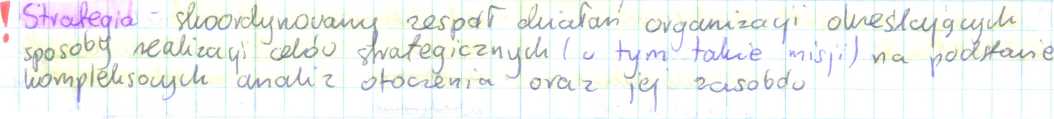 ! Strategia - skoordynowany zespół działań organizacji określających
sposoby realizacji celów strategicznych (w tym także misji) na podstawie
kompleksowych analiz otoczenia oraz jej zasobów